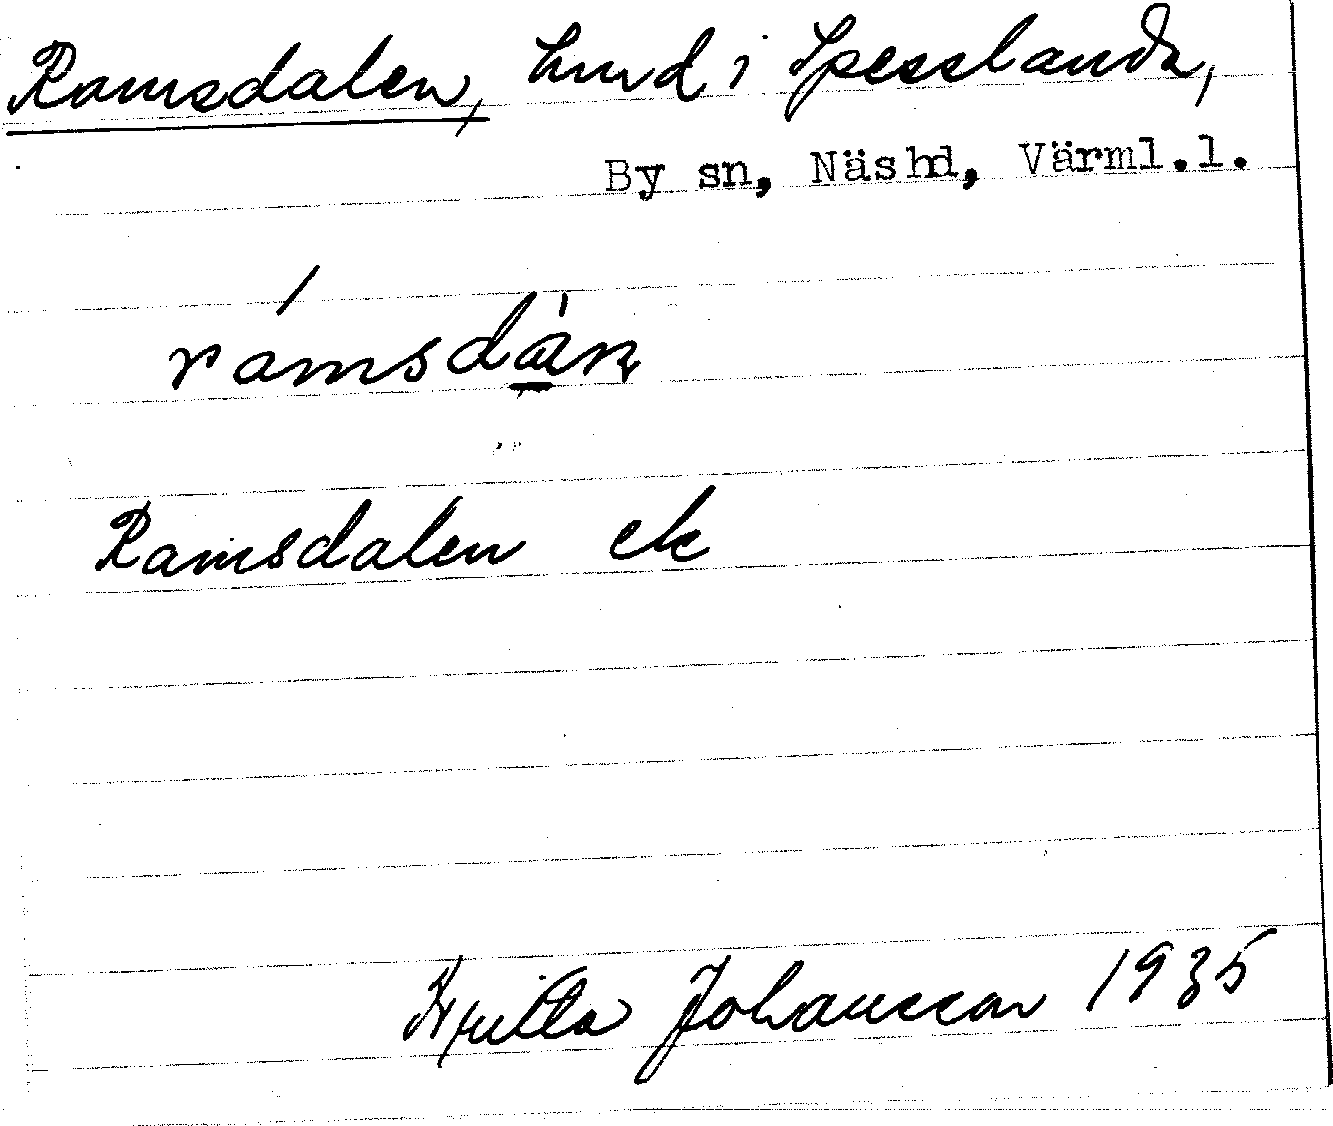 Ramsdalen, hmd i Spesslanda,
By sn, Näs hd, Värml.l.
ramsdàn
Ramsdalen ek
Johansson 1935